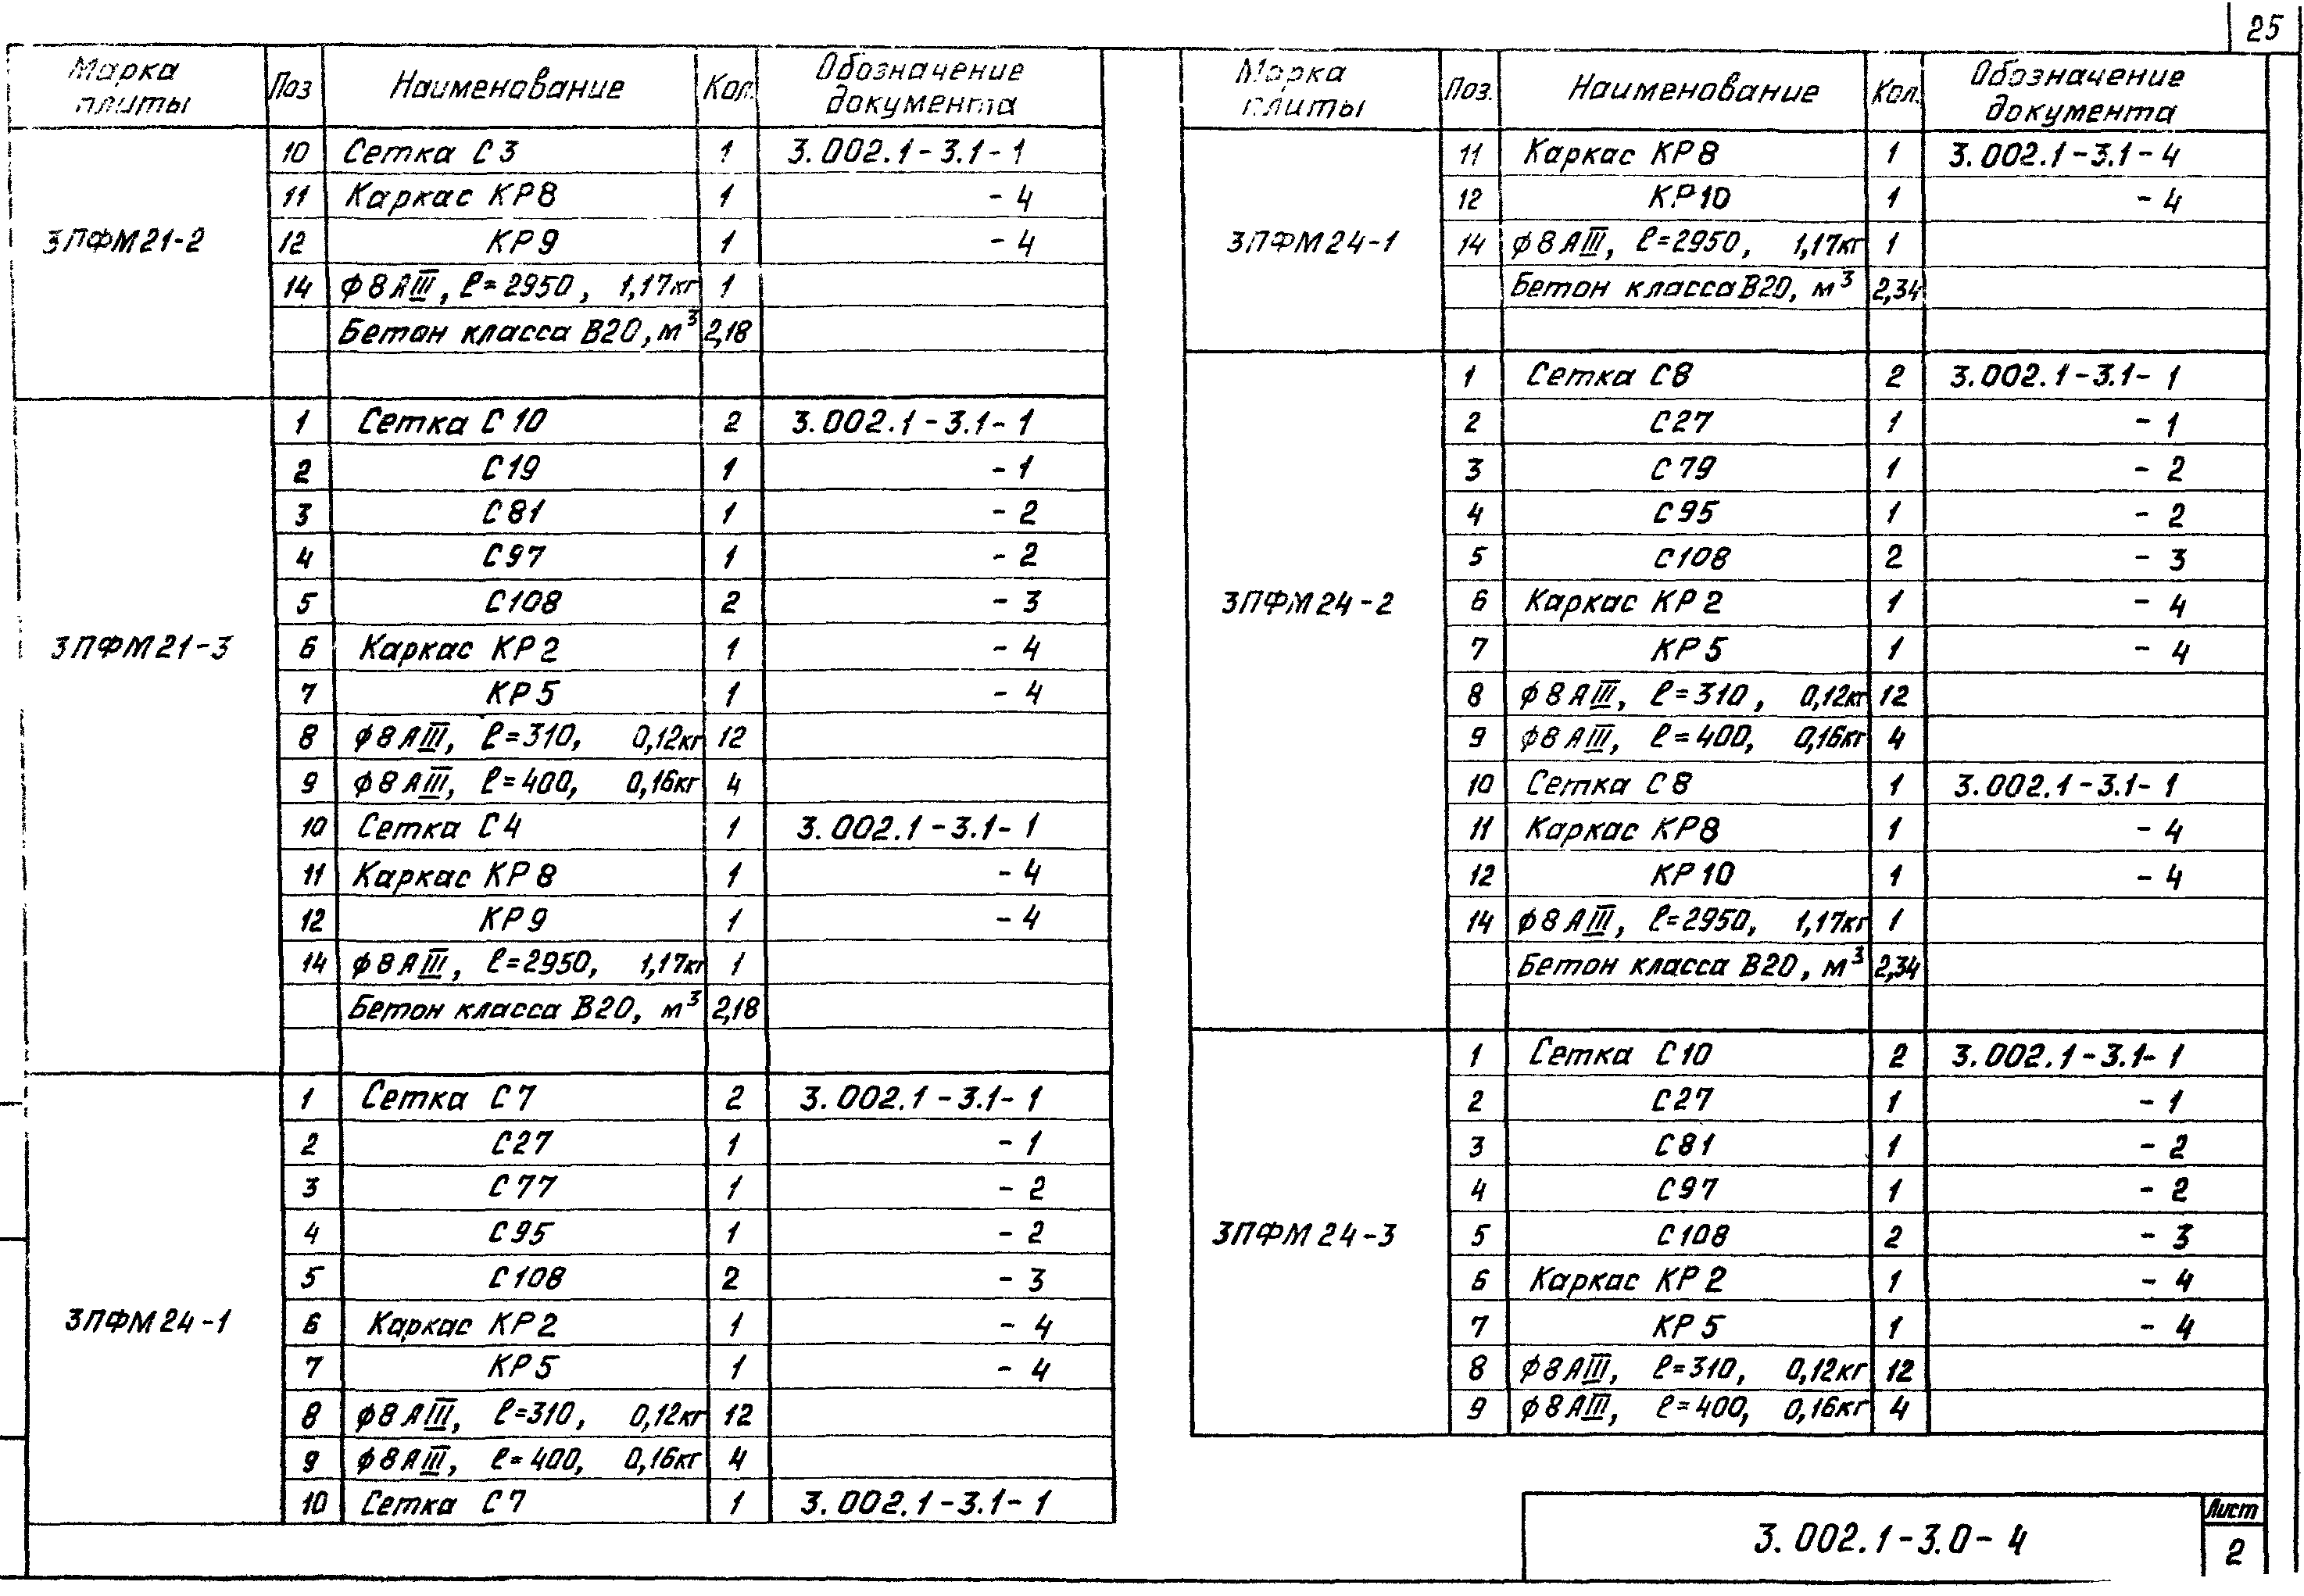 25
Марка плиты Поз Наименование Кол. Обозначение документа
3ПФМ21-2
10 Сетка С3 1 3.002.1-3.1-1
11 Каркас КР8 1 -4
12 КР9 1 -4
14 ϕ8АIII, ℓ=2950, 1,17кг 1
Бетон класса В20, м³ 2,18
3ПФМ21-3
1 Сетка С10 2 3.002.1-3.1-1
2 С19 1 -1
3 С81 1 -2
4 С97 1 -2
5 С108 2 -3
6 Каркас КР2 1 -4
7 КР5 1 -4
8 ϕ8АIII, ℓ=310, 0,12кг 12
9 ϕ8АIII, ℓ=400, 0,16кг 4
10 Сетка С4 1 3.002.1-3.1-1
11 Каркас КР8 1 -4
12 КР9 1 -4
14 ϕ8АIII, ℓ=2950, 1,17кг 1
Бетон класса В20, м³ 2,18
3ПФМ24-1
1 Сетка С7 2 3.002.1-3.1-1
2 С27 1 -1
3 С77 1 -2
4 С95 1 -2
5 С108 2 -3
6 Каркас КР2 1 -4
7 КР5 1 -4
8 ϕ8АIII, ℓ=310, 0,12кг 12
9 ϕ8АIII, ℓ=400, 0,16кг 4
10 Сетка С7 1 3.002.1-3.1-1
Марка плиты Поз. Наименование Кол. Обозначение документа
3ПФМ24-1
11 Каркас КР8 1 3.002.1-3.1-4
12 КР10 1 -4
14 ϕ8АIII, ℓ=2950, 1,17кг 1
Бетон класса В20, м³ 2,34
3ПФМ24-2
1 Сетка С8 2 3.002.1-3.1-1
2 С27 1 -1
3 С79 1 -2
4 С95 1 -2
5 С108 2 -3
6 Каркас КР2 1 -4
7 КР5 1 -4
8 ϕ8АIII, ℓ=310, 0,12кг 12
9 ϕ8АIII, ℓ=400, 0,16кг 4
10 Сетка С8 1 3.002.1-3.1-1
11 Каркас КР8 1 -4
12 КР10 1 -4
14 ϕ8АIII, ℓ=2950, 1,17кг 1
Бетон класса В20, м³ 2,34
3ПФМ24-3
1 Сетка С10 2 3.002.1-3.1-1
2 С27 1 -1
3 С81 1 -2
4 С97 1 -2
5 С108 2 -3
6 Каркас КР2 1 -4
7 КР5 1 -4
8 ϕ8АIII, ℓ=310, 0,12кг 12
9 ϕ8АIII, ℓ=400, 0,16кг 4
3.002.1-3.0-4
Лист
2